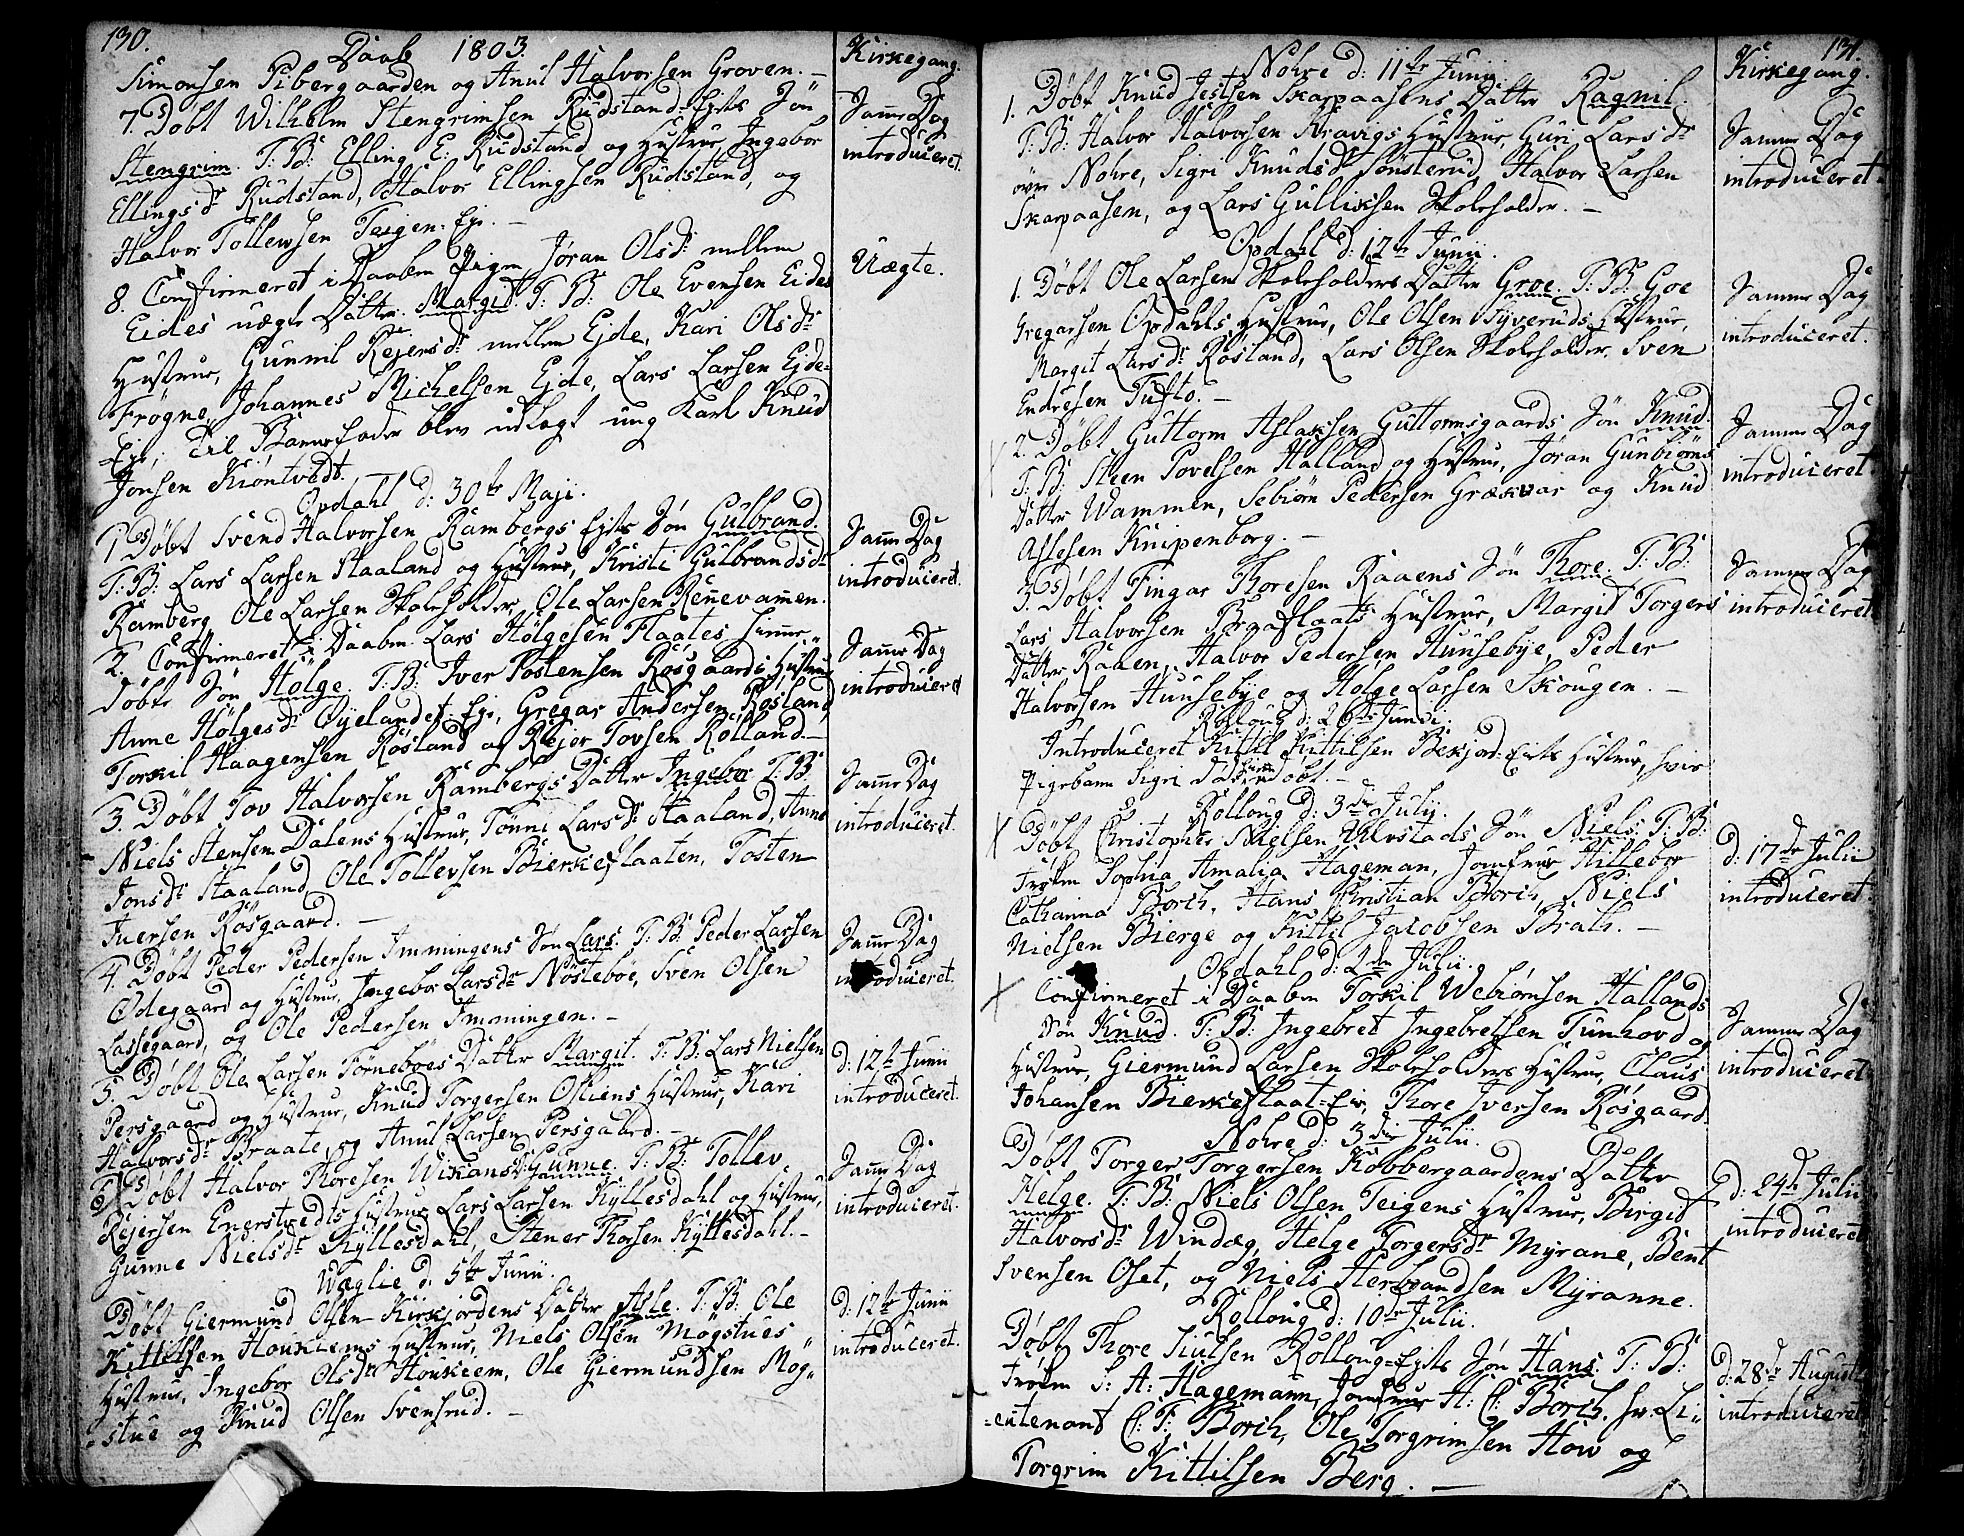 130.
Daab 1803.
Kirkegang.
Simonsen Pibergaarden og Anul Halvorsen Groven. –
7. Døbt Wilhelm Stengrimsen Rudstand-Eyets Søn
Stengrim. T: B: Elling E: Rudstand og Hustrue, Ingebor
Ellings dr Rudstand, Halvor Ellingsen Rudstand, og
Halvor Tollewsen Teigen-Eje. –
Samme Dag
introduceret.
8. Confirmeret i Daaben Pigen Jøran Olsdr mellem
Eides uægte Datter Margit. T: B: Ole Evensen Eides
Hustrue, Gunnil Rejersdr mellem Ejde, Kari Olsdr
Frøgne, Johannes Michelsen Ejde, Lars Larsen Ejde-
-Eje. Til Barnefader blev udlagt ung Karl Knud
Jonsen Kiøntvedt.
Uægte.
Opdahl d: 30te Maji.
1 Døbt Svend Halvorsen Rambergs Ejets Søn Gulbrand.
T: B: Lars Larsen Staaland og Hustrue, Kristi Gulbrandsdr
Ramberg, Ole Larsen Skoleholder, Ole Larsen Rennevammen.
Samme Dag
introduceret.
2. Confirmeret i Daaben Lars Hølgesen Flaates hiemme-
døbte Søn Hølge. T: B: Iver Tostensen Rosgaards Hustrue
Anne Hølgesdr Øyelandet-Eje, Gregar Andersen Røsland,
Torkil Haagensen Røsland og Rejer Tovsen Rolland. –
Samme Dag
introduceret
3. Døbt Tov Halvorsen Rambergs Datter Ingebor T: B:
Niels Stensen Dalens Hustrue, Tønni Larsdr Staaland, Anne
Jonsdr Staaland, Ole Tollevsen Bierkeflaaten, Tosten
Iversen Røsgaard. –
Samme Dag
introduceret.
4. Døbt Peder Pedersen Immingens Søn Lars. T: B: Peder Larsen
Ødegaard og Hustrue, Ingebor Larsdr Nøsteboe, Sven Olsen
Lassegaard, og Ole Pedersen Immingen. –
Samme Dag
introduceret.
5. Døbt Ole Larsen Tørneboes Datter Margit. T: B: Lars Nielsen
Persgaard og Hustrue, Knud Torgersen Ostiens Hustrue, Kari
Halvorsdr Braate, og Anul Larsen Persgaard. –
d: 12te Junii
introduceret.
6 Døbt Halvor Thoresen Wikans Dr Gunne. T: B: Tollev
Rejersen Enerstvedts Hustrue, Lars Larsen Kyllesdahl og Hustrue,
Gunne Nielsdr Kyllesdahl, Stener Thorsen Kyllesdahl. –
Samme Dag
introduceret.
Wæglie d: 5te Junii.
Døbt Giermund Olsen Kirkjordens Datter Asle. T: B: Ole
Kittilsen Houkiems Hustrue, Niels Olsen Mogstues
Hustrue, Ingebor Olsdr Houkeem, Ole Giermundsen Mog-
-stue og Knud Olsen Svensrud. –
d: 12te Junii
introduceret.
131.
Kirkegang.
Nohre d: 11te Junii
1. Døbt Knud Jestsen Skarpaasens Datter Ragnil.
T: B: Halvor Halvorsen Kravigs Hustrue, Guri Larsdr
øvre Nohre, Sigri Knudsdr Sønsterud, Halvor Larsen
Skarpaasen, og Lars Gulliksen Skoleholder. –
Samme Dag
introduceret.
Opdahl d: 12te Junii.
1. Døbt Ole Larsen Skoleholders Datter Groe. T: B: Goe
Gregarsen Opdahls Hustrue, Ole Olsen Syveruds Hustrue,
Margit Larsdr Røsland, Lars Olsen Skoleholder, Sven
Endresen Tufto. –
Samme Dag
introduceret.
2. Døbt Guttorm Aslaksen Guttormsgaards Søn Knud.
T: B: Steen Povelsen Halland og Hustrue, Jøran Gunbiørns
Datter Wammen, Sebiørn Pedersen Græskar og Knud
Aslesen Knipenborg. –
Samme Dag
introduceret
3. Døbt Fingar Thoresen Raaens Søn Thore. T: B:
Lars Halvorsen Braaflaats Hustrue, Margit Torgers
Datter Raaen, Halvor Pedersen Hunsebye, Peder
Halvorsen Hunsebye og Hølge Larsen Skougen. –
Samme Dag
introduceret
Rolloug d: 26de Junii.
Introduceret Kittil Kittilsen Bekjord-Eiets Hustrue, hvis
Pigebarn Sigri var hiemmedøbt. –
Rolloug d: 3die Julii.
Døbt Christopher Nielsen Ulevstads Søn Niels. T: B:
Frøken Sophia Amalia Hageman, Jomfrue Hillebor
Catharina Borch, Hans Christian Borch, Niels
Nielsen Bierge og Kittil Jacobsen Brath. –
d: 17de Julii
introduceret.
Opdahl d: 2den Julii.
Confirmeret i Daaben Torkil Webiørnsen Hallands
Søn Knud. T: B: Ingebret Ingebretsen Tunhovd og
Hustrue, Giermund Larsen Skoleholders Hustrue, Claus
Johansen Bierkeflaat-Eie, Thore Iversen Røsgaard.
Samme Dag
introduceret
Nohre d: 3die Julii.
Døbt Torger Torgersen Kobbergaardens Datter
Helge. T: B: Niels Olsen Teigens Hustrue, Birgit
Halvorsdr Windæg, Helge Torgersdr Myrane, Bent
Svensen Oset, og Niels Herbrandsen Myranne.
d: 24de Julii
introduceret
Rolloug d: 10de Julii.
Døbt Thore Siulsen Rolloug-Eyets Søn Hans. T: B:
Frøken S: A: Hagemann, Jomfrue H: C: Borch, Hr: Li-
-eutenant C: T: Borch, Ole Torgrimsen How og
Torgrim Kittilsen Berg. –
d: 28de August
introduceret